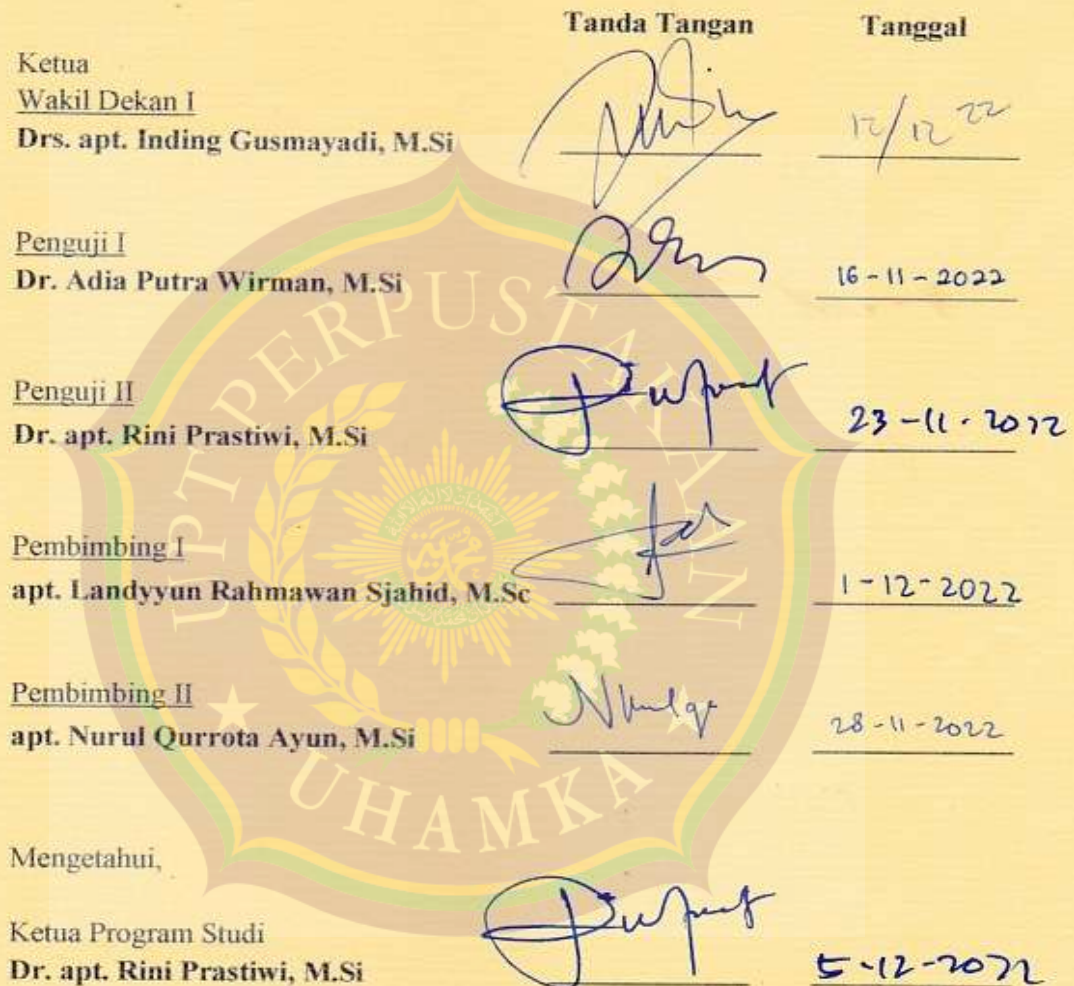 Tanda Tangan Tanggal
Ketua
Wakil Dekan I
Drs. apt. Inding Gusmayadi, M.Si
12/12 22
Penguji I
Dr. Adia Putra Wirman, M.Si
16-11-2022
Penguji II
Dr. apt. Rini Prastiwi, M.Si
23-11-2022
Pembimbing I
apt. Landyyun Rahmawan Sjahid, M.Sc
1-12-2022
Pembimbing II
apt. Nurul Qurrota Ayun, M.Si
28-11-2022
Mengetahui,
Ketua Program Studi
Dr. apt. Rini Prastiwi, M.Si
5-12-2022
UPT PERPUSTAKAAN
UHAMKA